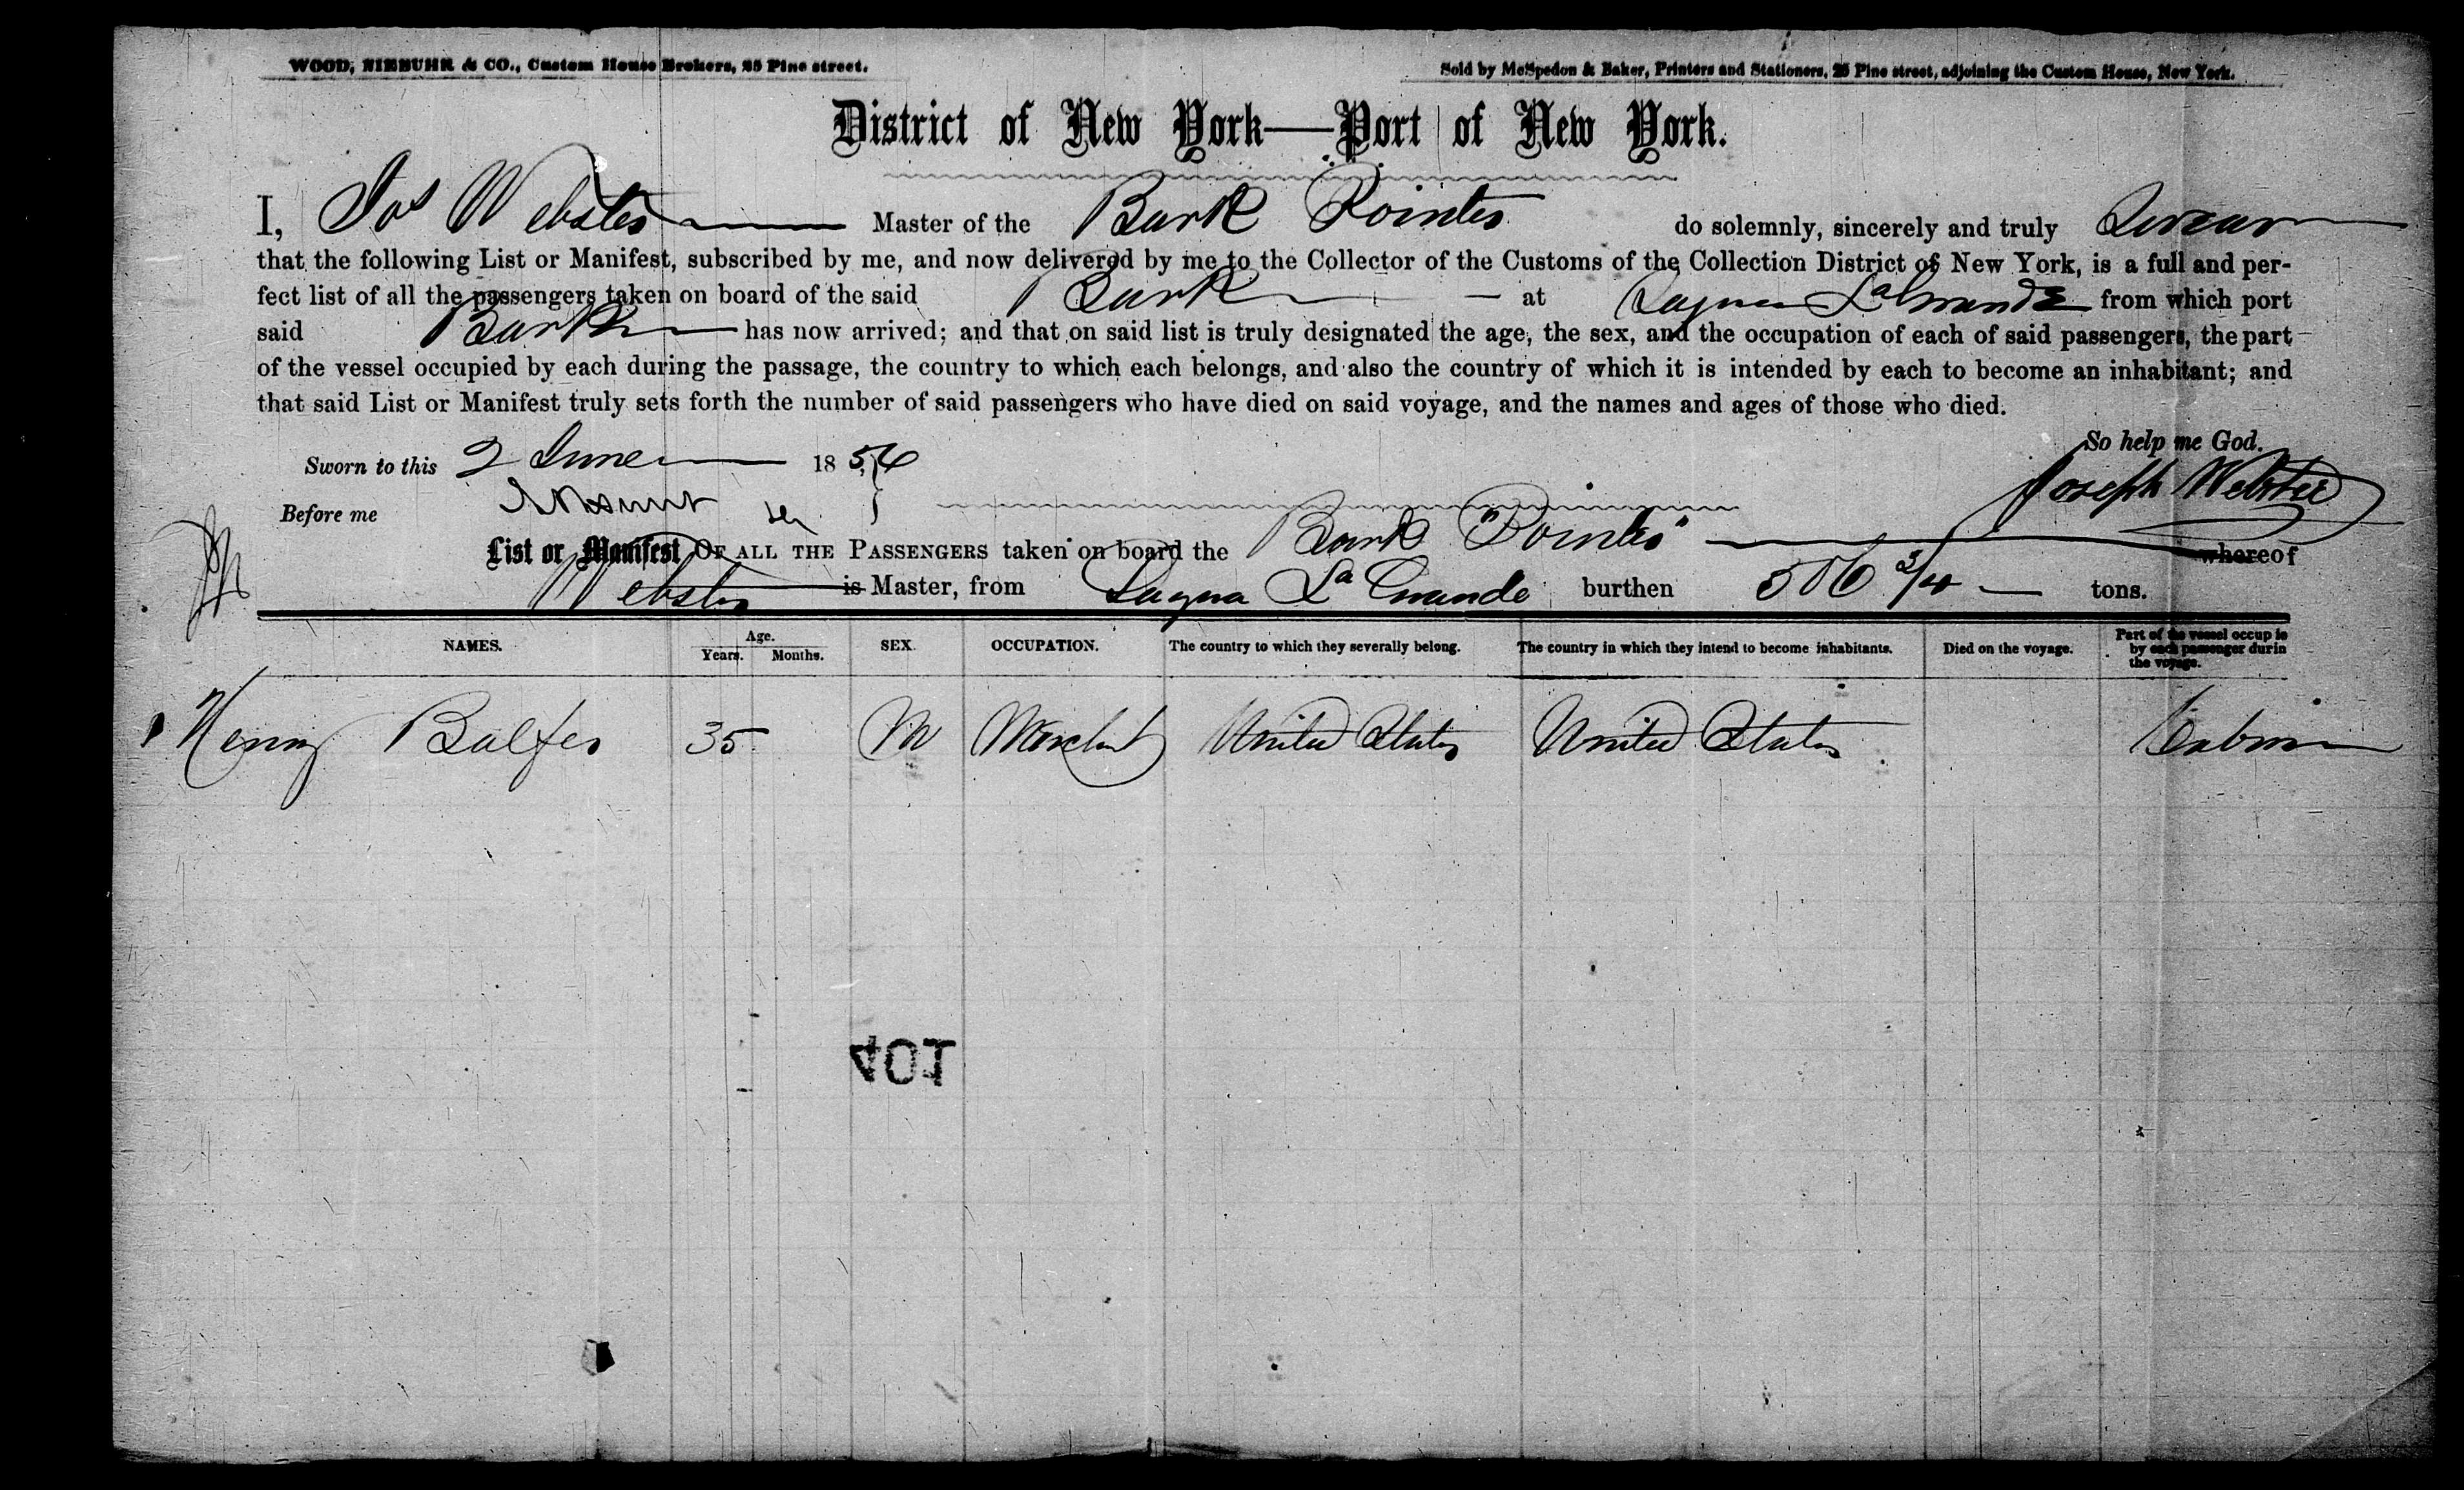 WOOD, NIEBUHR & CO., Custom House Brokers, 25 Pine street.
Sold by McSpedon & Baker, Printers and Stationers, 25 Pine street, adjoining the Custom House, New York.
District of New York—Port of New York.
I, Jos Webster Master of the Bark Pointer do solemnly, sincerely and truly Swear
that the following List or Manifest, subscribed by me, and now delivered by me to the Collector of the Customs of the Collection District of New York, is a full and per-
fect list of all the passengers taken on board of the said Bark at Laguna La Grande from which port
said Bark has now arrived; and that on said list is truly designated the age, the sex, and the occupation of each of said passengers, the part
of the vessel occupied by each during the passage, the country to which each belongs, and also the country of which it is intended by each to become an inhabitant; and
that said List or Manifest truly sets forth the number of said passengers who have died on said voyage, and the names and ages of those who died.
So help me God.
Sworn to this 2 June 1856
Joseph Webster
Before me
List or Manifest OF ALL THE PASSENGERS taken on board the Bark "Pointer" whereof
Webster is Master, from Laguna La Grande burthen 506 3/4 tons.
NAMES. Age. Years. Months. SEX. OCCUPATION. The country to which they severally belong. The country in which they intend to become inhabitants. Died on the voyage. Part of the vessel occup ie by each passenger durin the voyage.
Henry Balfer 35 M Merchant United States United States Cabin
401